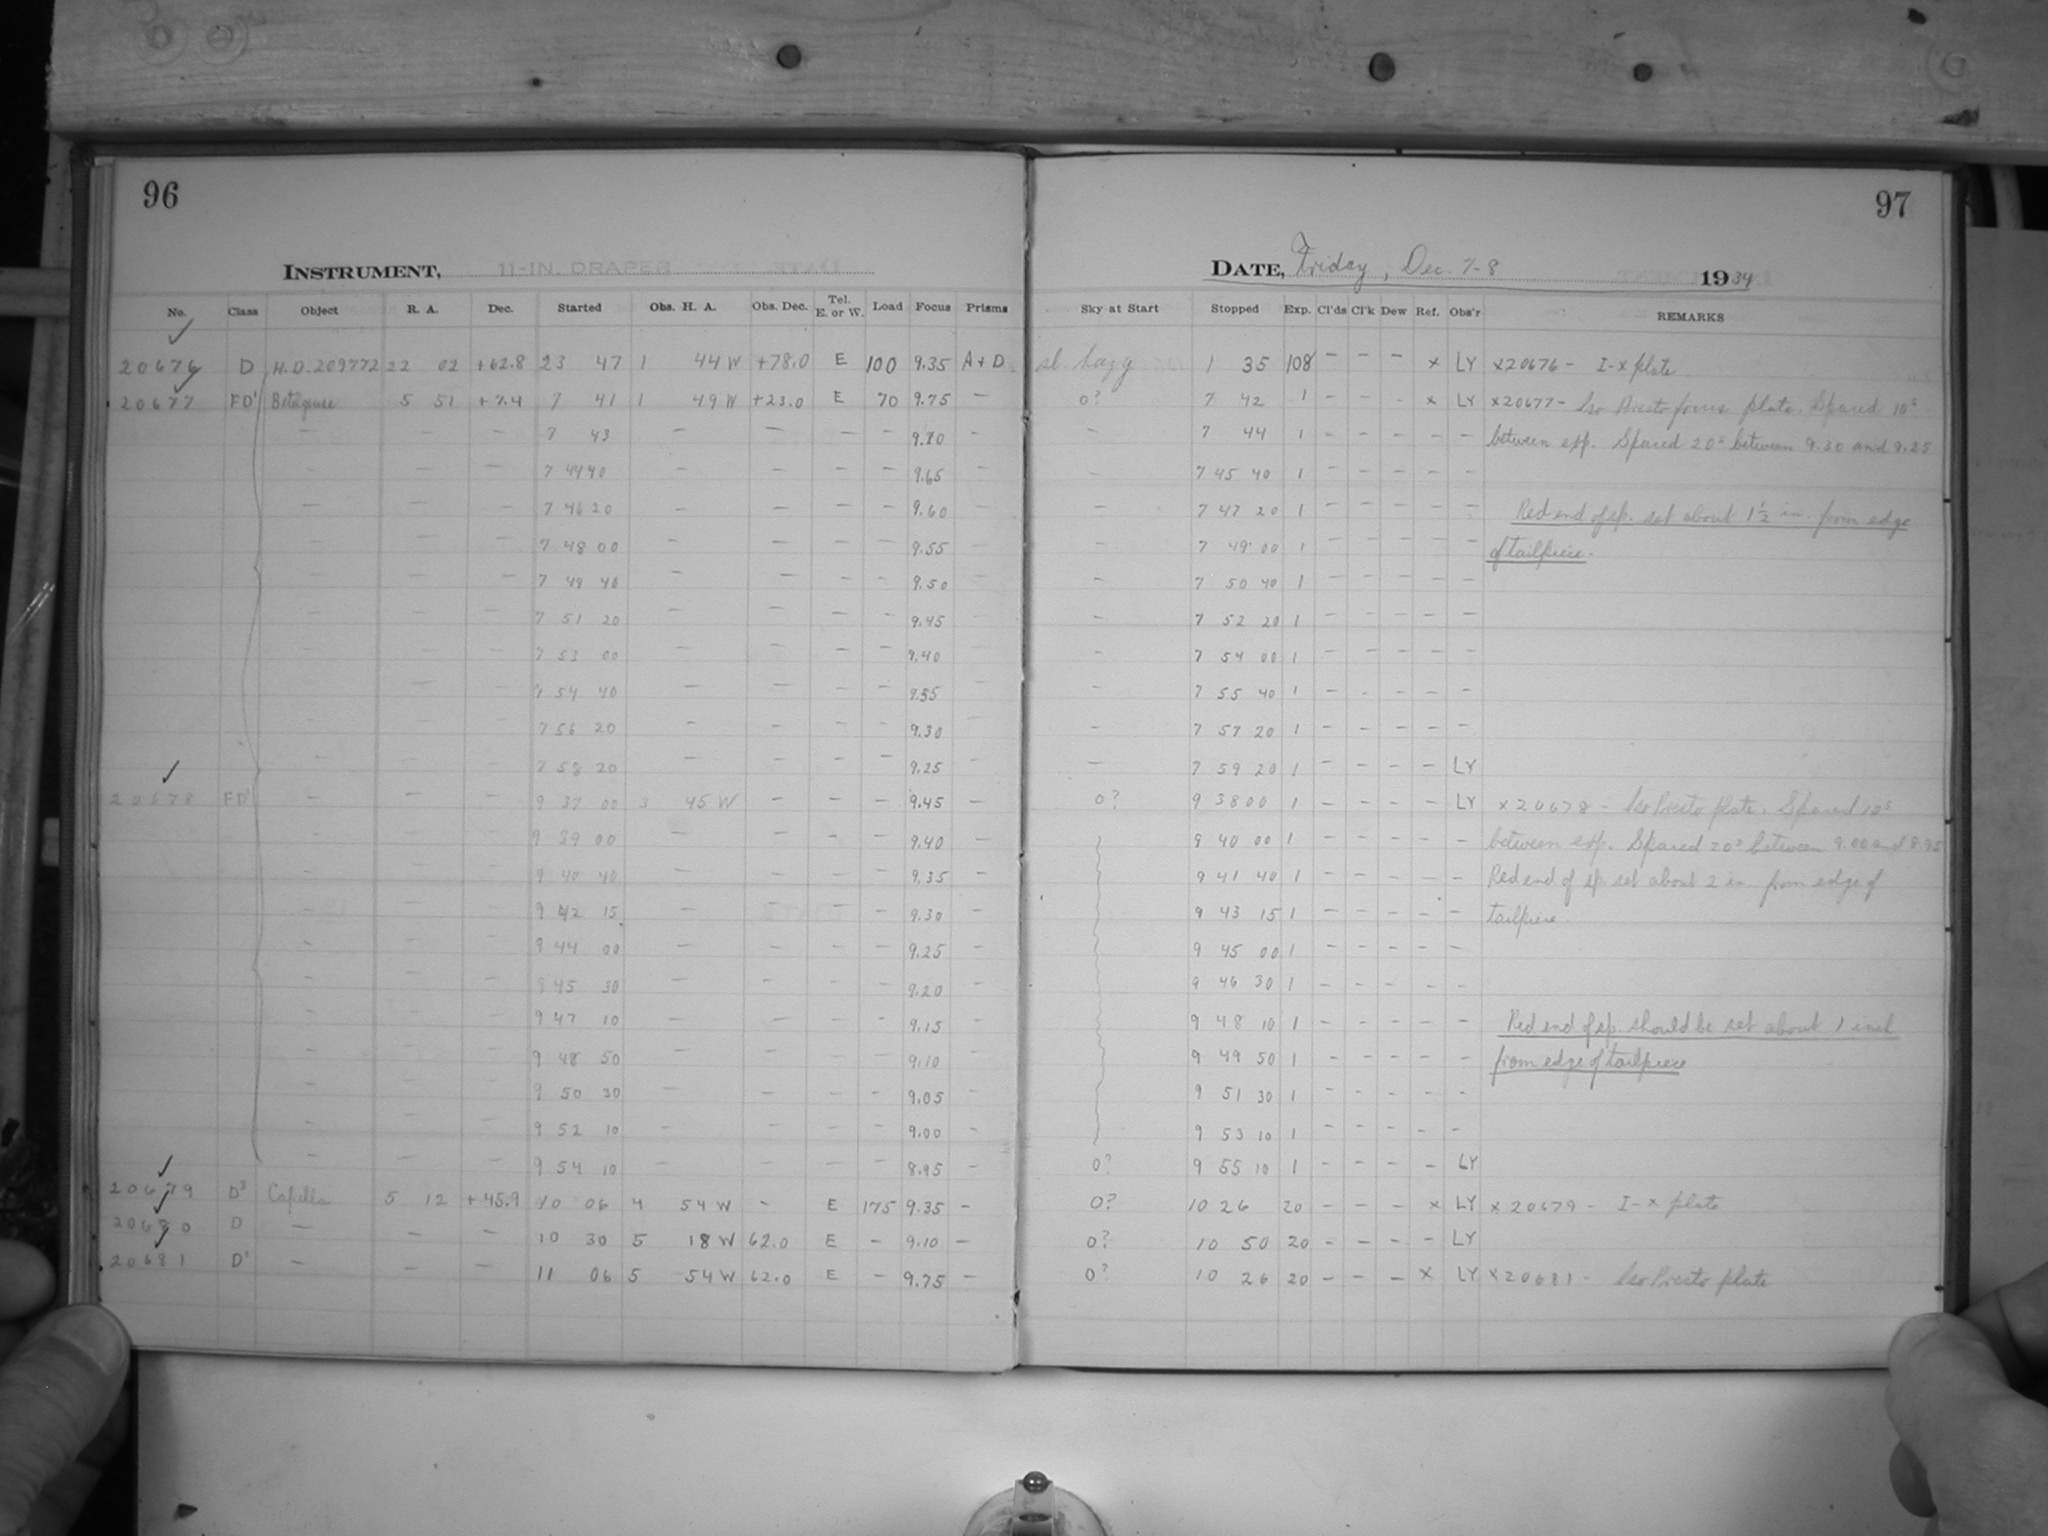 96
97
INSTRUMENT, 11-IN. DRAPER
DATE, Friday, Dec. 7-8 1934
No. Class Object R. A. Dec. Started Obs. H. A. Obs. Dec. Tel. E. or W. Load Focus Prisms Sky at Start Stopped Exp. Cl'ds Cl'k Dew Ref. Obs'r REMARKS
20676 D H.D. 209772 22 02 +62.8 23 47 1 44 W +78.0 E 100 9.35 A+D sl. hazy 1 35 108 - - - x LY x20676 - I-x plate
20677 FD' Betelgeuse 5 51 +7.4 7 41 1 49 W +23.0 E 70 9.75 - 0? 7 42 1 - - - x LY x20677 - Iso Presto focus plate. Spaced 10s
- - - 7 43 - - - - 9.70 - - 7 44 1 - - - - - between exp. Spaced 20s between 9.30 and 9.25
- - - 7 44 40 - - - - 9.65 - - 7 45 40 1 - - - - -
- - - 7 46 20 - - - - 9.60 - - 7 47 20 1 - - - - - Red end of sp. set about 1 1/2 in. from edge
- - - 7 48 00 - - - - 9.55 - - 7 49 00 1 - - - - - of tailpiece.
- - - 7 49 40 - - - - 9.50 - - 7 50 40 1 - - - - -
- - - 7 51 20 - - - - 9.45 - - 7 52 20 1 - - - - -
- - - 7 53 00 - - - - 9.40 - - 7 54 00 1 - - - - -
- - - 7 54 40 - - - - 9.35 - - 7 55 40 1 - - - - -
- - - 7 56 20 - - - - 9.30 - - 7 57 20 1 - - - - -
- - - 7 58 20 - - - - 9.25 - - 7 59 20 1 - - - - LY
20678 FD' - - - 9 37 00 3 45 W - - - 9.45 - 0? 9 38 00 1 - - - - LY x20678 - Iso Presto plate. Spaced 10s
- - - 9 39 00 - - - - 9.40 - 9 40 00 1 - - - - - between exp. Spaced 20s between 9.00 and 8.95
- - - 9 40 40 - - - - 9.35 - 9 41 40 1 - - - - - Red end of sp. set about 2 in. from edge of
- - - 9 42 15 - - - - 9.30 - 9 43 15 1 - - - - - tailpiece.
- - - 9 44 00 - - - - 9.25 - 9 45 00 1 - - - - -
- - - 9 45 30 - - - - 9.20 - 9 46 30 1 - - - - -
- - - 9 47 10 - - - - 9.15 - 9 48 10 1 - - - - - Red end of sp. should be set about 1 inch
- - - 9 48 50 - - - - 9.10 - 9 49 50 1 - - - - - from edge of tailpiece
- - - 9 50 30 - - - - 9.05 - 9 51 30 1 - - - - -
- - - 9 52 10 - - - - 9.00 - 9 53 10 1 - - - - -
- - - 9 54 10 - - - - 8.95 - 0? 9 55 10 1 - - - - LY
20679 D3 Capella 5 12 +45.9 10 06 4 54 W - E 175 9.35 - 0? 10 26 20 - - - x LY x20679 - I-x plate
20680 D - - - 10 30 5 18 W 62.0 E - 9.10 - 0? 10 50 20 - - - - LY
20681 D' - - - 11 06 5 54 W 62.0 E - 9.75 - 0? 10 26 20 - - - x LY x20681 - Iso Presto plate